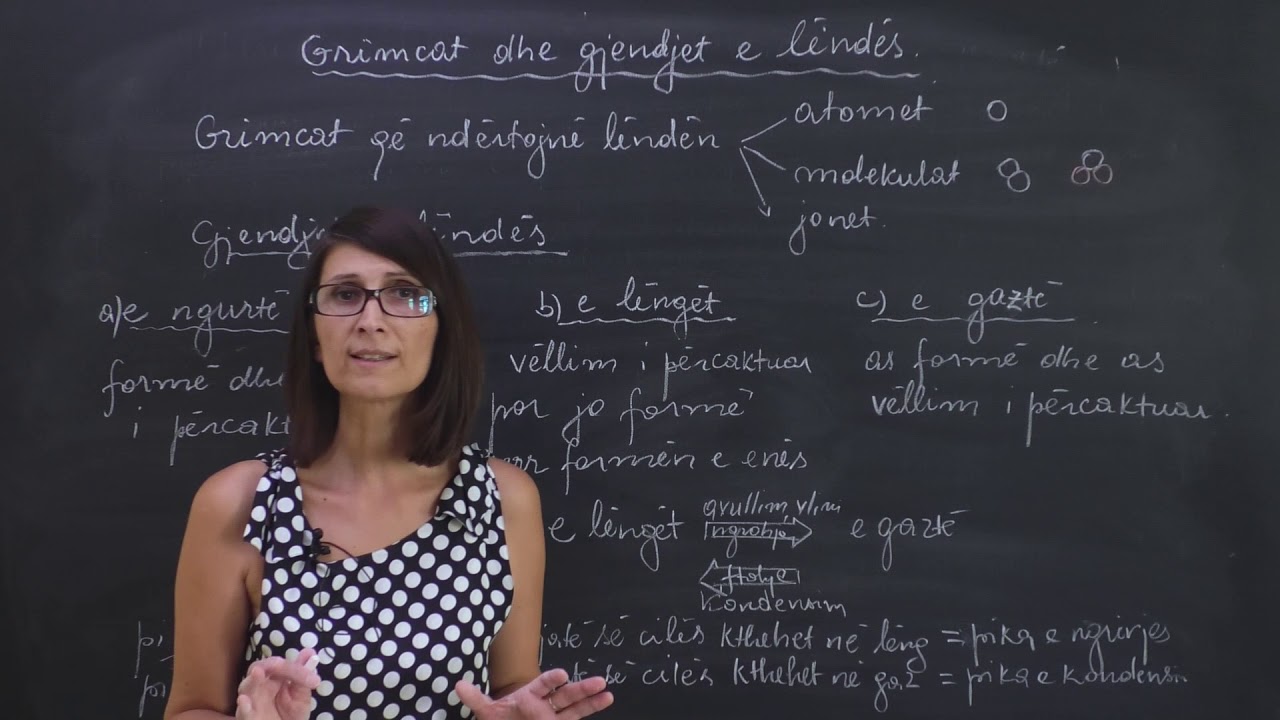 Grimcat dhe gjendjet e lëndës.
Grimcat që ndërtojnë lëndën
atomet
molekulat
jonet.
lëndës
a) e ngurtë
b) e lëngët
c) e gaztë
formë dhe
i përcakt
vëllim i përcaktuar
por jo formë
formën e enës
as formë dhe as
vëllim i përcaktuar.
e lëngët
avullim, vlim
ngrohje
ftohje
kondensim
e gaztë
së cilës kthehet në lëng = pika e ngrirjes
së cilës kthehet në gaz = pika e kondensim